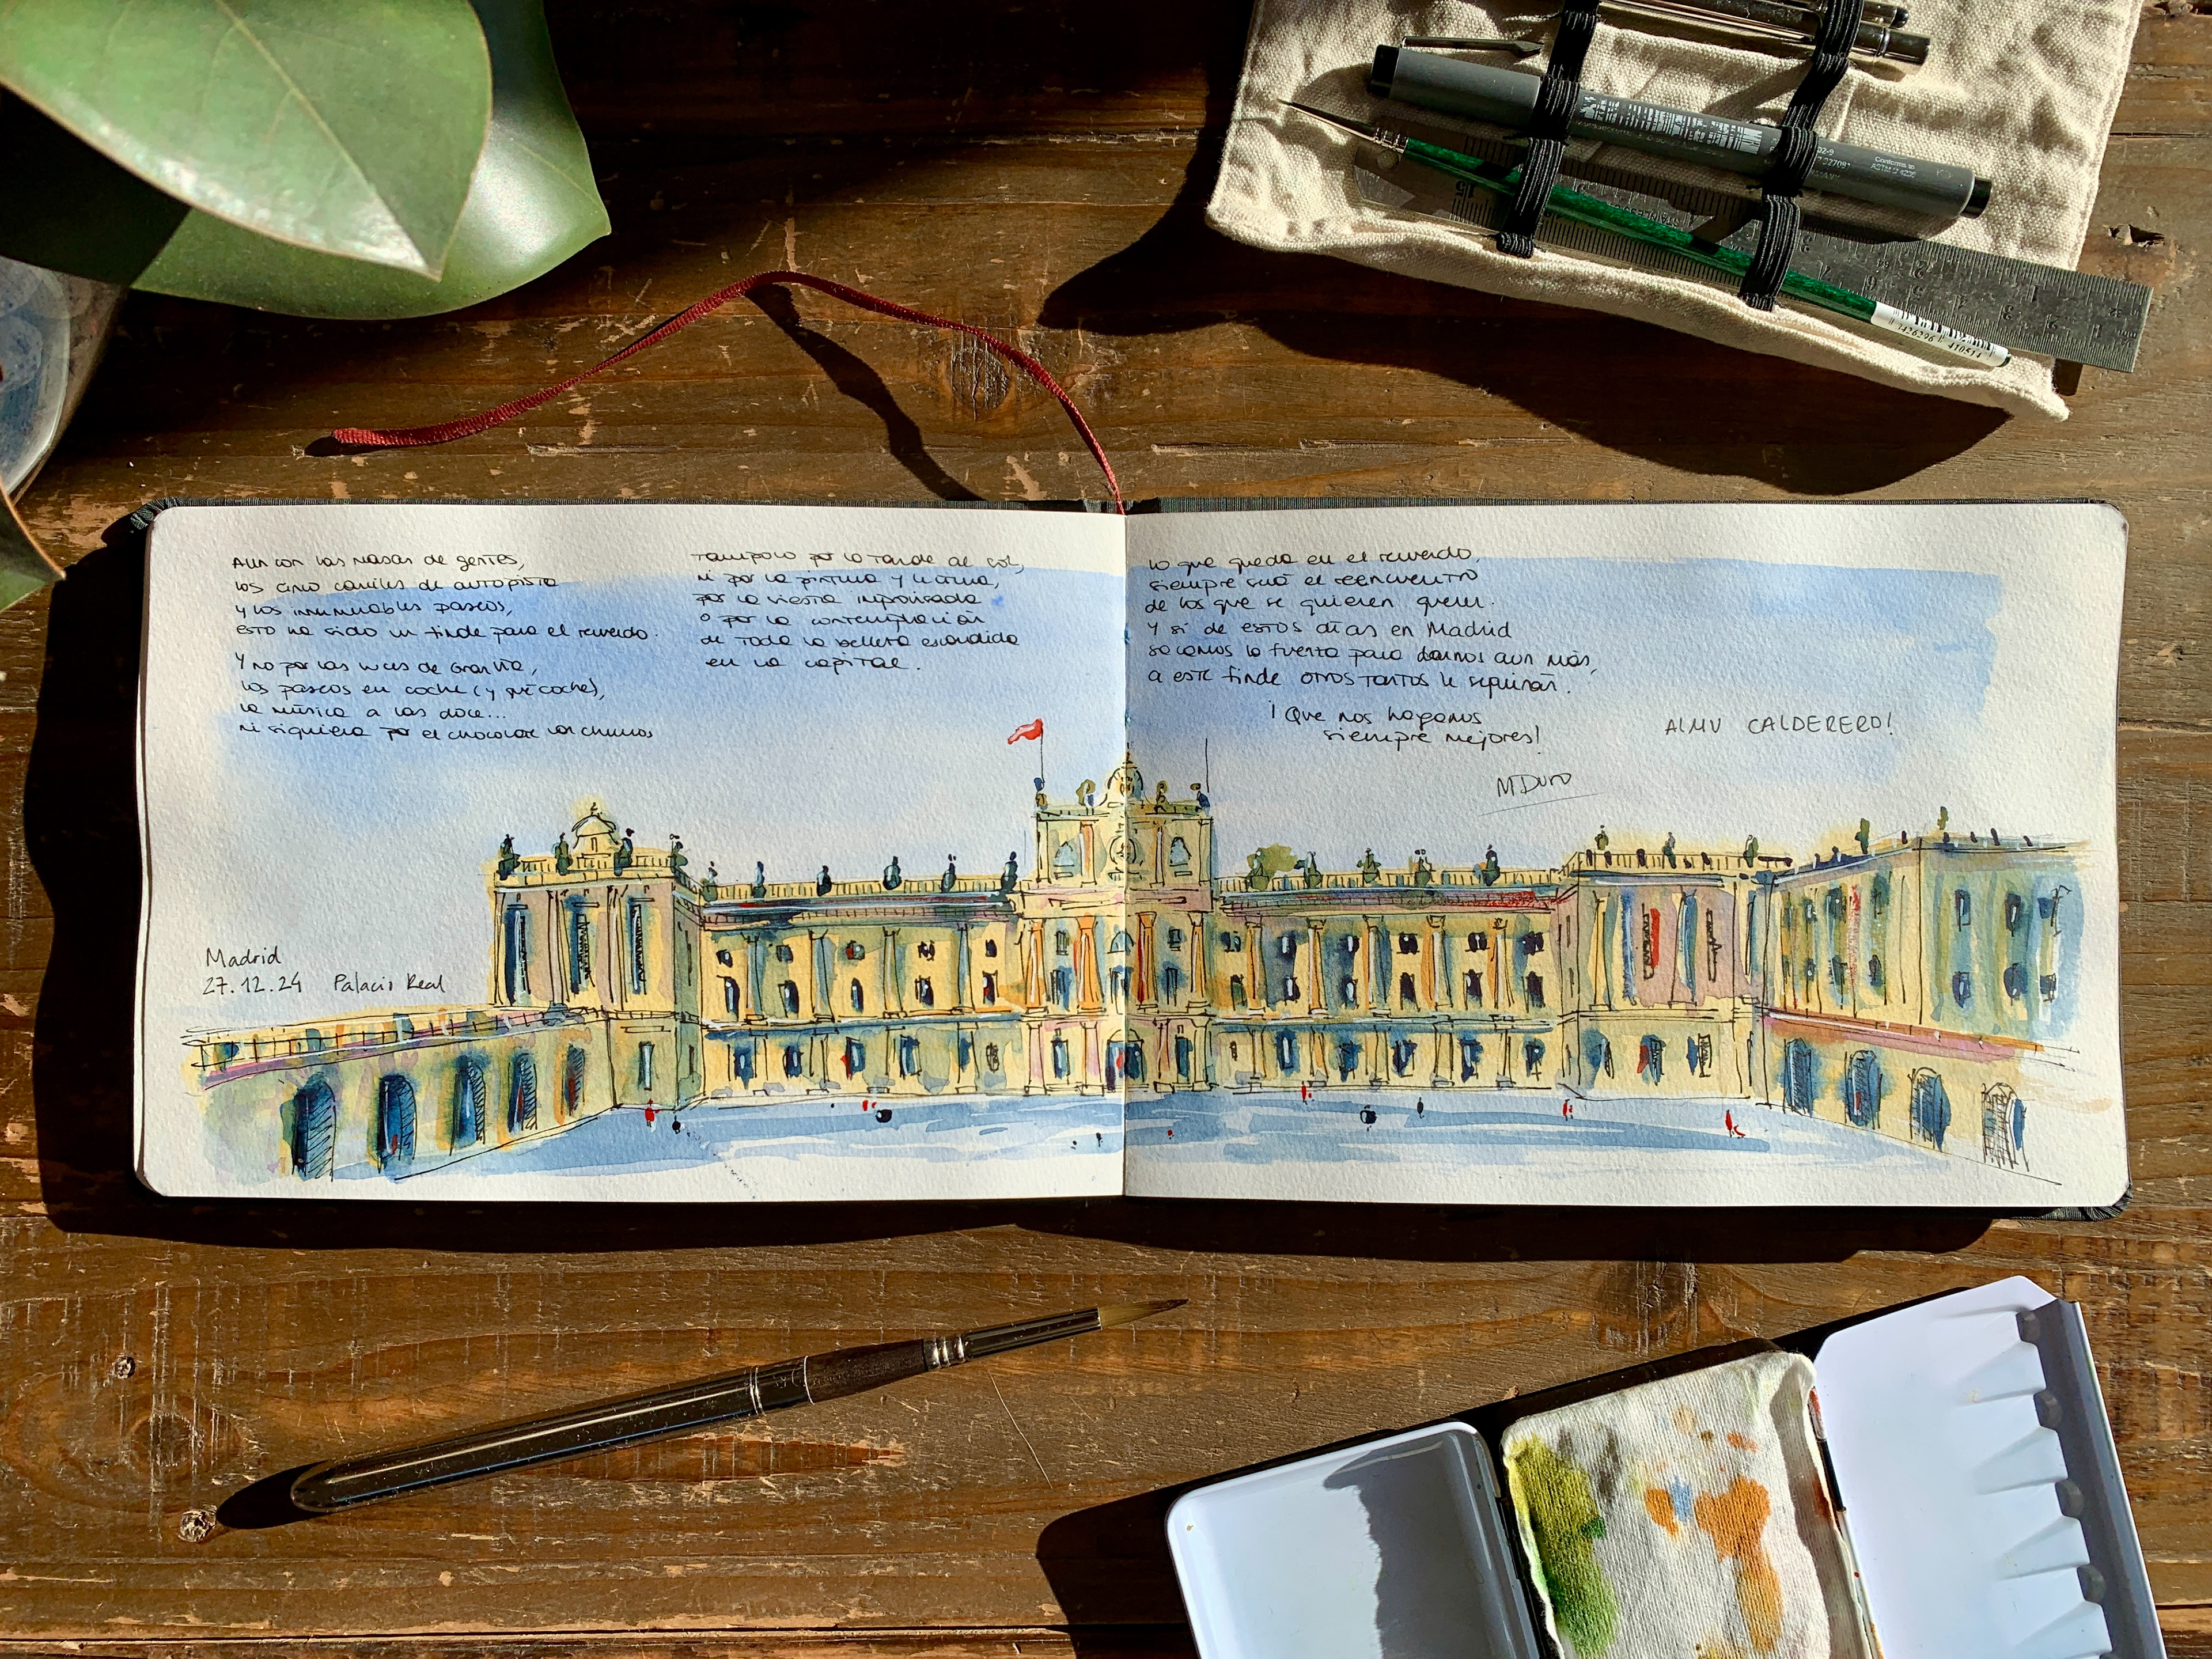 Aun con las masas de gentes,
los cinco carriles de autopista
y los innumerables paseos,
esto ha sido un finde para el recuerdo.
Y no por las luces de Gran Vía,
los paseos en coche (y qué coche),
la música a las doce...
ni siquiera por el chocolate con churros
Tampoco por la tarde al sol,
ni por la pintura y
por la siesta improvisada
o por la contemplación
de toda la belleza escondida
en la capital.
Lo que queda en el recuerdo,
siempre será el reencuentro
de los que se quieren querer.
Y si de estos días en Madrid
sacamos la fuerza para darnos aun más,
a este finde otros tantos le seguirán.
¡Que nos hagamos
siempre mejores!
ALMU CALDERERO!
MDuro
Madrid
27.12.24 Palacio Real
02-9
Conforms to
ASTM D 4236
15